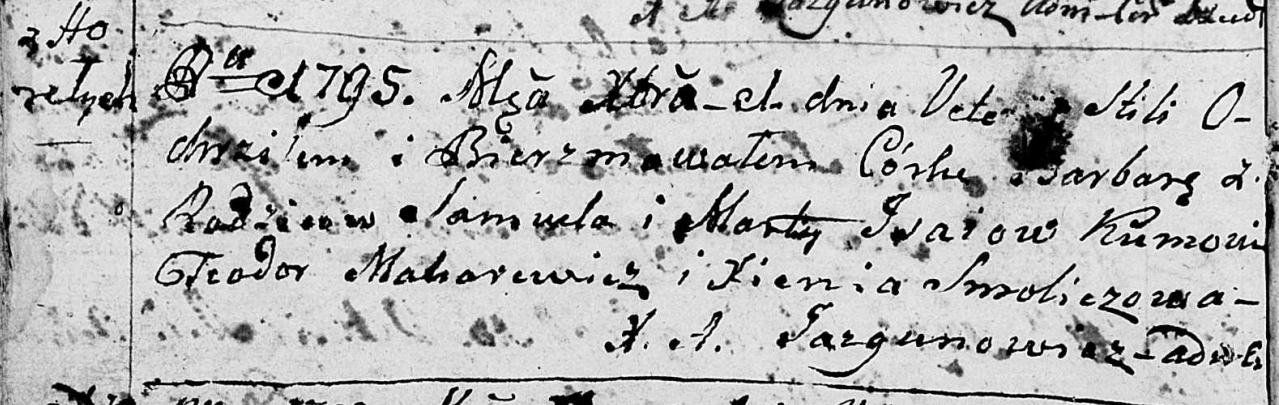 z Ho
rełych
Jazgunowicz
Rᵃ 1795. Mcă Xbră 21. dnia Vete Stili O-
chrziłem i Bierzmowałem Córke Barbarę z
Rodziców Samuela i Marty Isaiow Kumowie
Teodor Makarewicz i Xienia Smoliczowa-
X. A. Jazgunowicz-